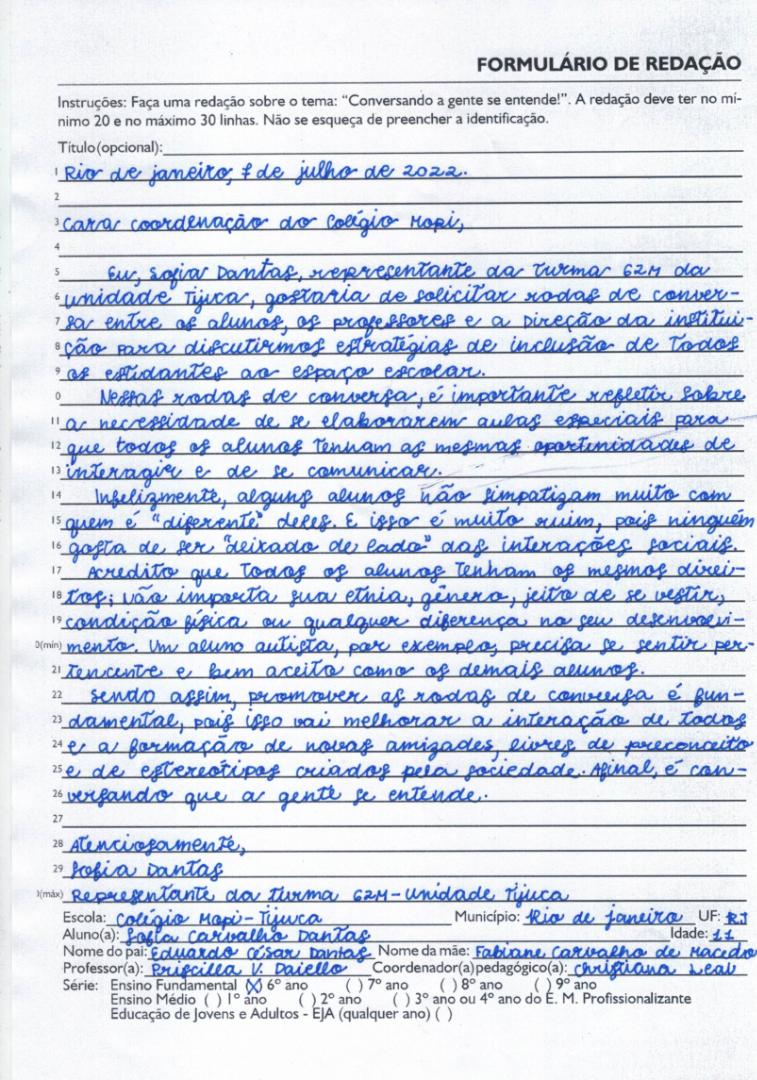 FORMULÁRIO DE REDAÇÃO
Instruções: Faça uma redação sobre o tema: "Conversando a gente se entende!". A redação deve ter no mí-
nimo 20 e no máximo 30 linhas. Não se esqueça de preencher a identificação.
Título(opcional):
1 Rio de janeiro, 7 de julho de 2022.
2
3 Cara coordenação do Colégio Mopi,
4
5 Eu, Sofia Dantas, representante da turma 62M da
6 unidade Tijuca, gostaria de solicitar rodas de conver-
7 sa entre os alunos, os professores e a Direção da institui-
8 ção para discutirmos estratégias de inclusão de todos
9 os estudantes ao espaço escolar.
0 Nessas rodas de conversa, é importante refletir sobre
11 a necessidade de se elaborarem aulas especiais para
12 que todos os alunos tenham as mesmas oportunidades de
13 interagir e de se comunicar.
14 Infelizmente, alguns alunos não simpatizam muito com
15 quem é "diferente" deles. E isso é muito ruim, pois ninguém
16 gosta de ser "deixado de lado" das interações sociais.
17 Acredito que todos os alunos tenham os mesmos direi-
18 tos; não importa sua etnia, gênero, jeito de se vestir,
19 condição física ou qualquer diferença no seu desenvolvi-
0(mín) mento. Um aluno autista, por exemplo, precisa se sentir per-
21 tencente e bem aceito como os demais alunos.
22 Sendo assim, promover as rodas de conversa é fun-
23 damental, pois isso vai melhorar a interação de todos
24 e a formação de novas amizades, livres de preconceito
25 e de estereótipos criados pela sociedade. Afinal, é con-
26 versando que a gente se entende.
27
28 Atenciosamente,
29 Sofia Dantas
(máx) Representante da turma 62M - Unidade Tijuca
Escola: Colégio Mopi - Tijuca Município: Rio de janeiro UF: RJ
Aluno(a): Sofia Carvalho Dantas Idade: 11
Nome do pai: Eduardo César Dantas Nome da mãe: Fabiane Carvalho de Macedo
Professor(a): Priscilla V. Daiello Coordenador(a) pedagógico(a): Christiana Leal
Série: Ensino Fundamental (X) 6º ano ( ) 7º ano ( ) 8º ano ( ) 9º ano
Ensino Médio ( ) 1º ano ( ) 2º ano ( ) 3º ano ou 4º ano do E. M. Profissionalizante
Educação de Jovens e Adultos - EJA (qualquer ano) ( )